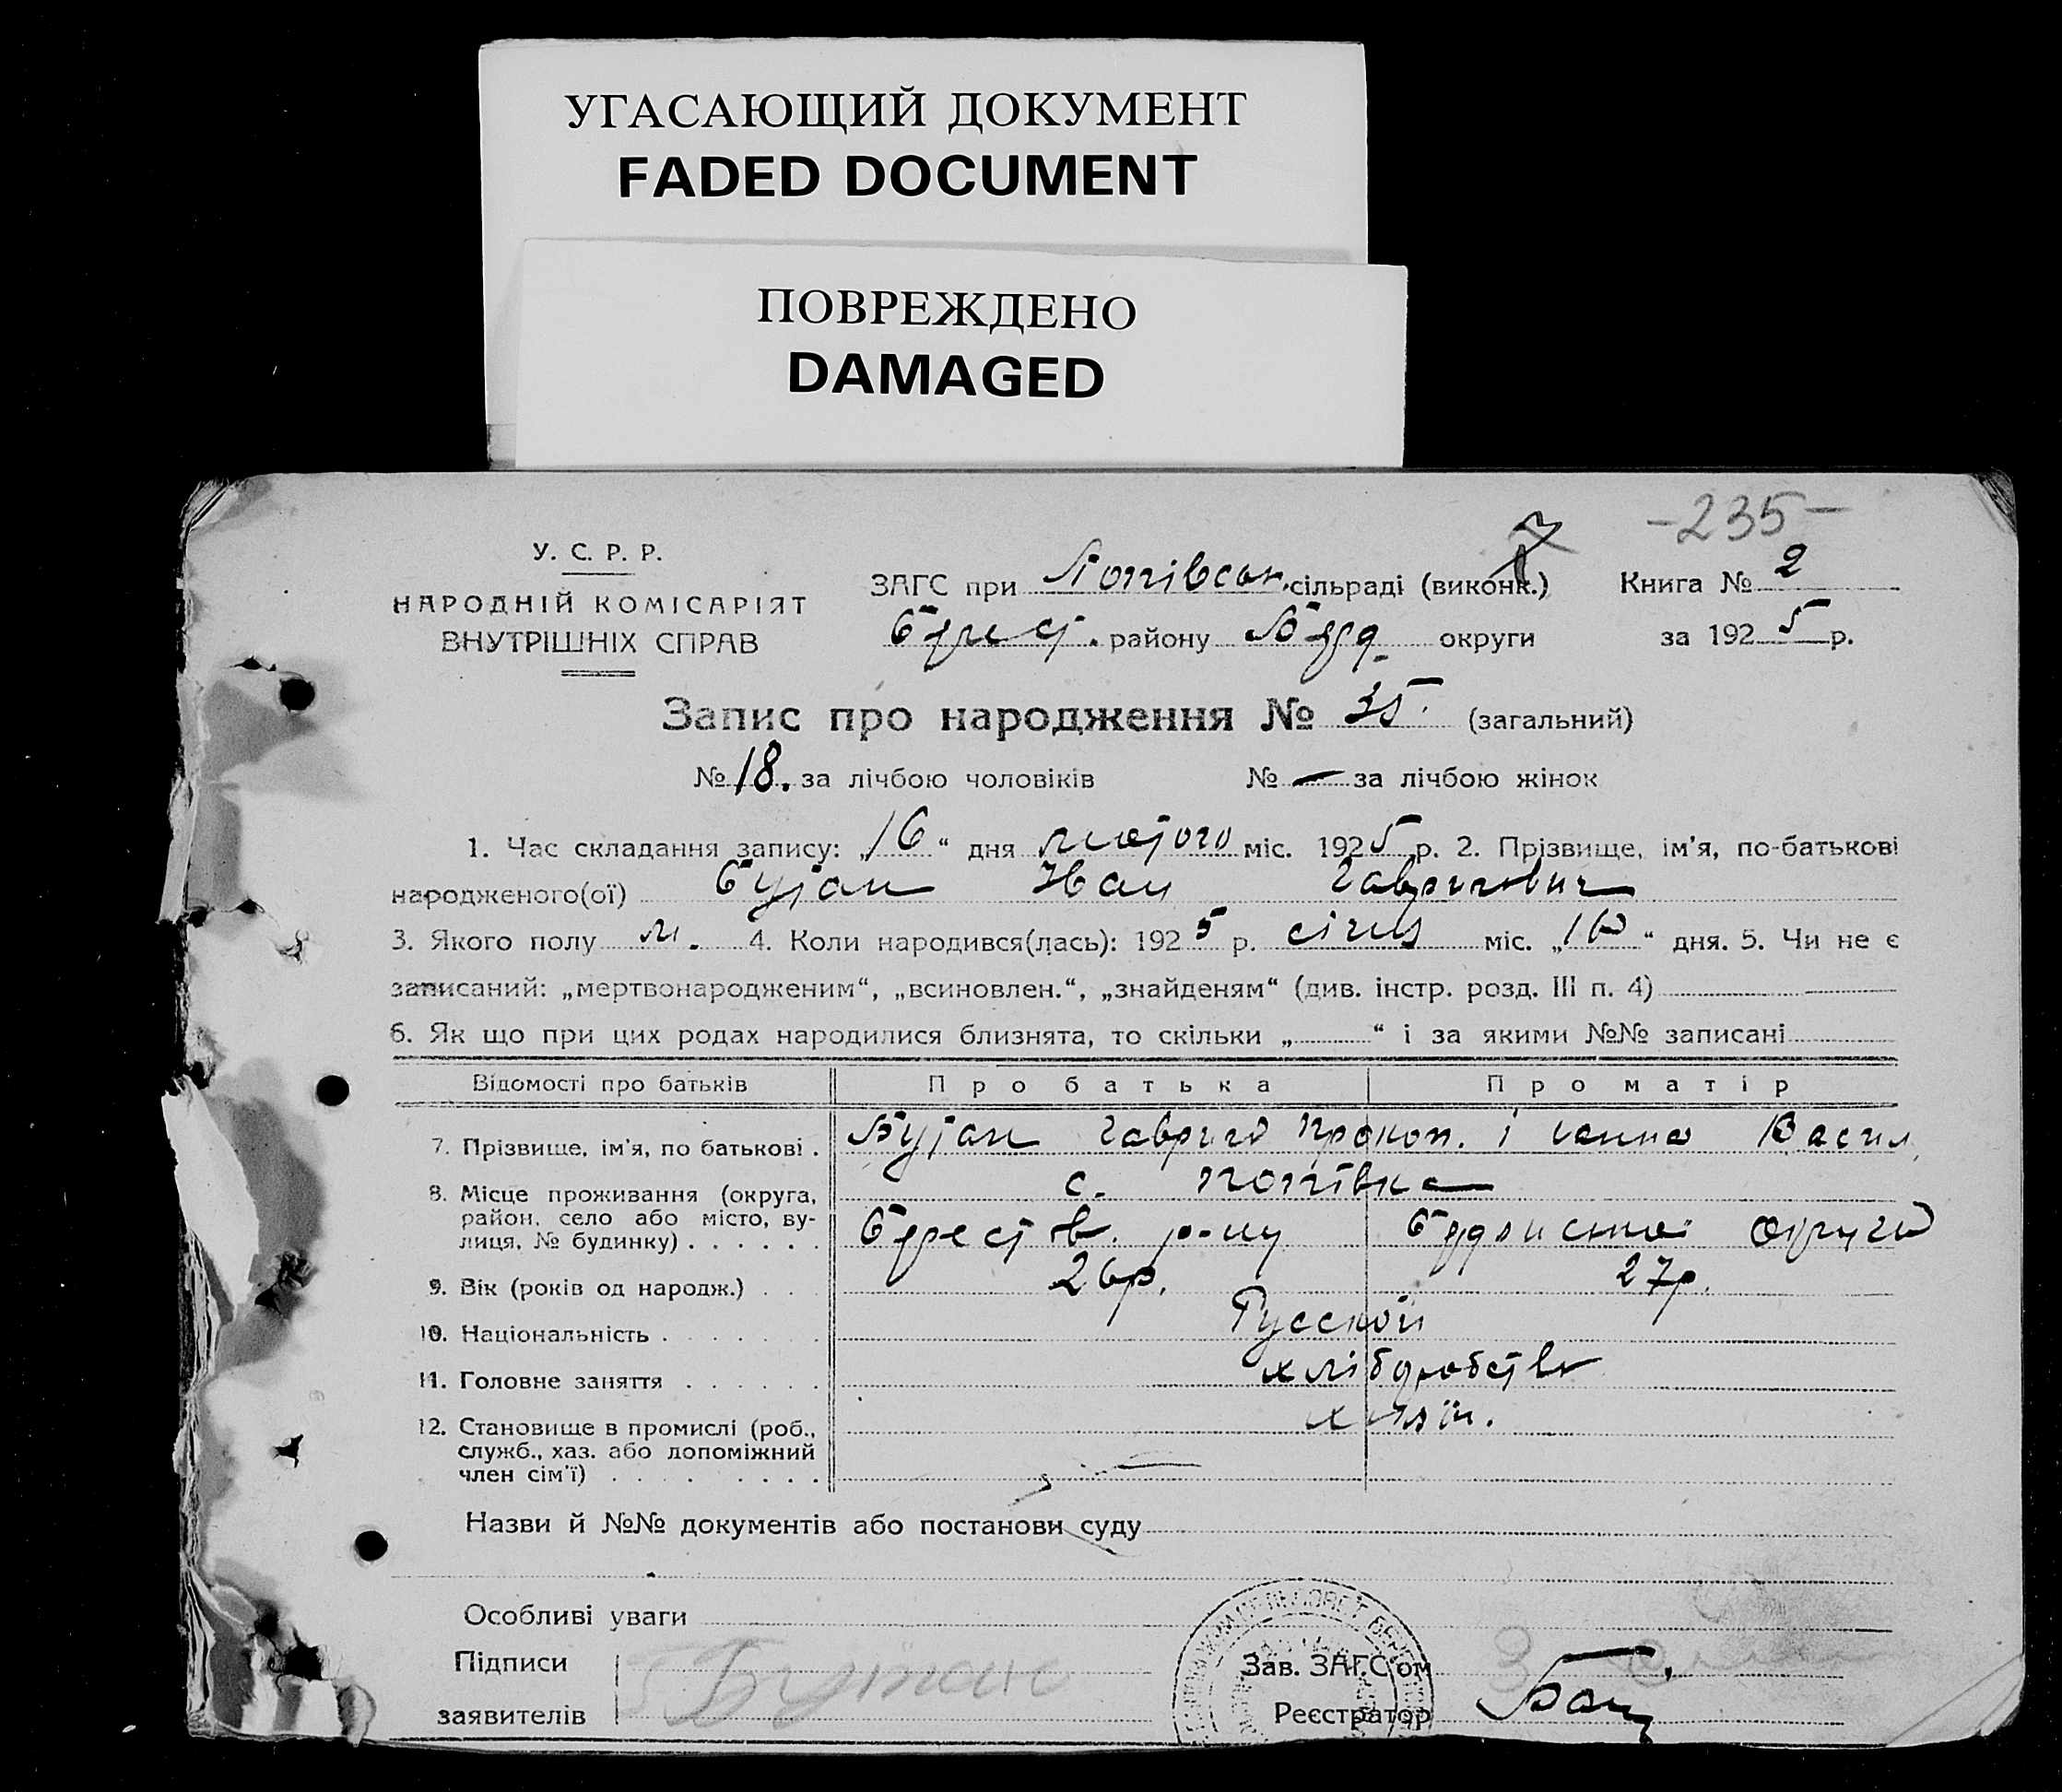 УГАСАЮЩИЙ ДОКУМЕНТ
FADED DOCUMENT
ПОВРЕЖДЕНО
DAMAGED
-235-
У. С. Р. Р.
НАРОДНІЙ КОМІСАРІЯТ
ВНУТРІШНІХ СПРАВ
ЗАГС при Попівськ. сільраді (виконк.) Книга № 2
району округи за 1925 р.
Запис про народження № 35. (загальний)
№ 18. за лічбою чоловіків № — за лічбою жінок
1. Час складання запису: „16“ дня лютого міс. 1925 р. 2. Прізвище, ім'я, по-батькові
народженого(ої) Бутан Иван Гаврилович
3. Якого полу м. 4. Коли народився(лась): 1925 р. січня міс. „16“ дня. 5. Чи не є
записаний: „мертвонародженим“, „всиновлен.“, „знайденям“ (див. інстр. розд. III п. 4)
6. Як що при цих родах народилися близнята, то скільки „ “ і за якими №№ записані
Відомості про батьків Про батька Про матір
7. Прізвище, ім'я, по батькові . Бутан Гаврило Прокоп. і Ганна Васил.
8. Місце проживання (округа, с. Попівка
район, село або місто, ву-
лиця, № будинку) . . . . . . р-ну округи
9. Вік (років од народж.) . . . 26р. 27р.
10. Національність . . . . . . . Русской
11. Головне заняття . . . . . . хліборобство
12. Становище в промислі (роб., хазяїн.
служб., хаз. або допоміжний
член сім'ї) . . . . . . . . .
Назви й №№ документів або постанови суду
Особливі уваги
Підписи Бутан Зав. ЗАГС'ом
заявителів Реєстратор